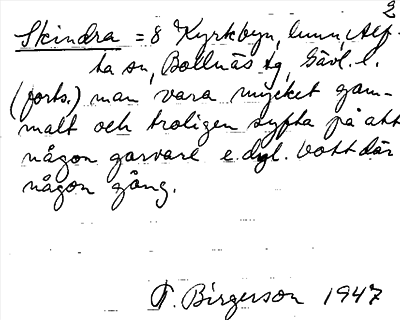 2
Skindra = 8 Kyrkbyn, hmn, Alf-
ta sn, Bollnäs tg, Gävl. l.
(forts.) man vara mycket gam-
malt och troligen syfta på att
någon garvare e.dyl. bott där
någon gång.
F. Birgerson 1947